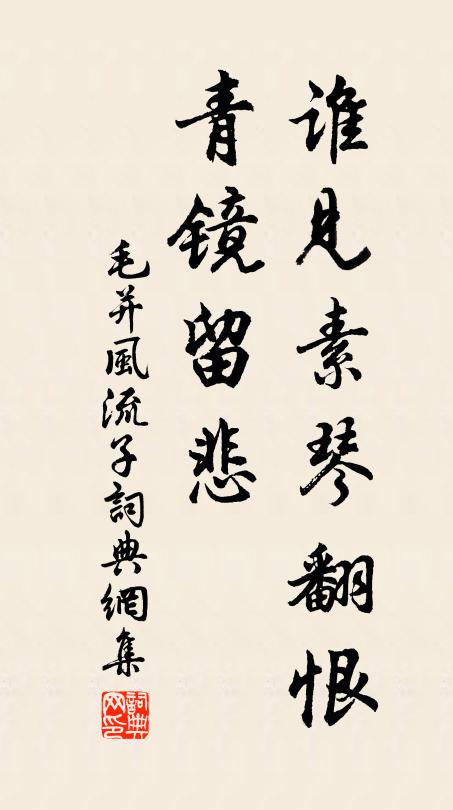 谁见素琴翻恨
青镜留悲
毛并風流子詞典網集
詞典网印